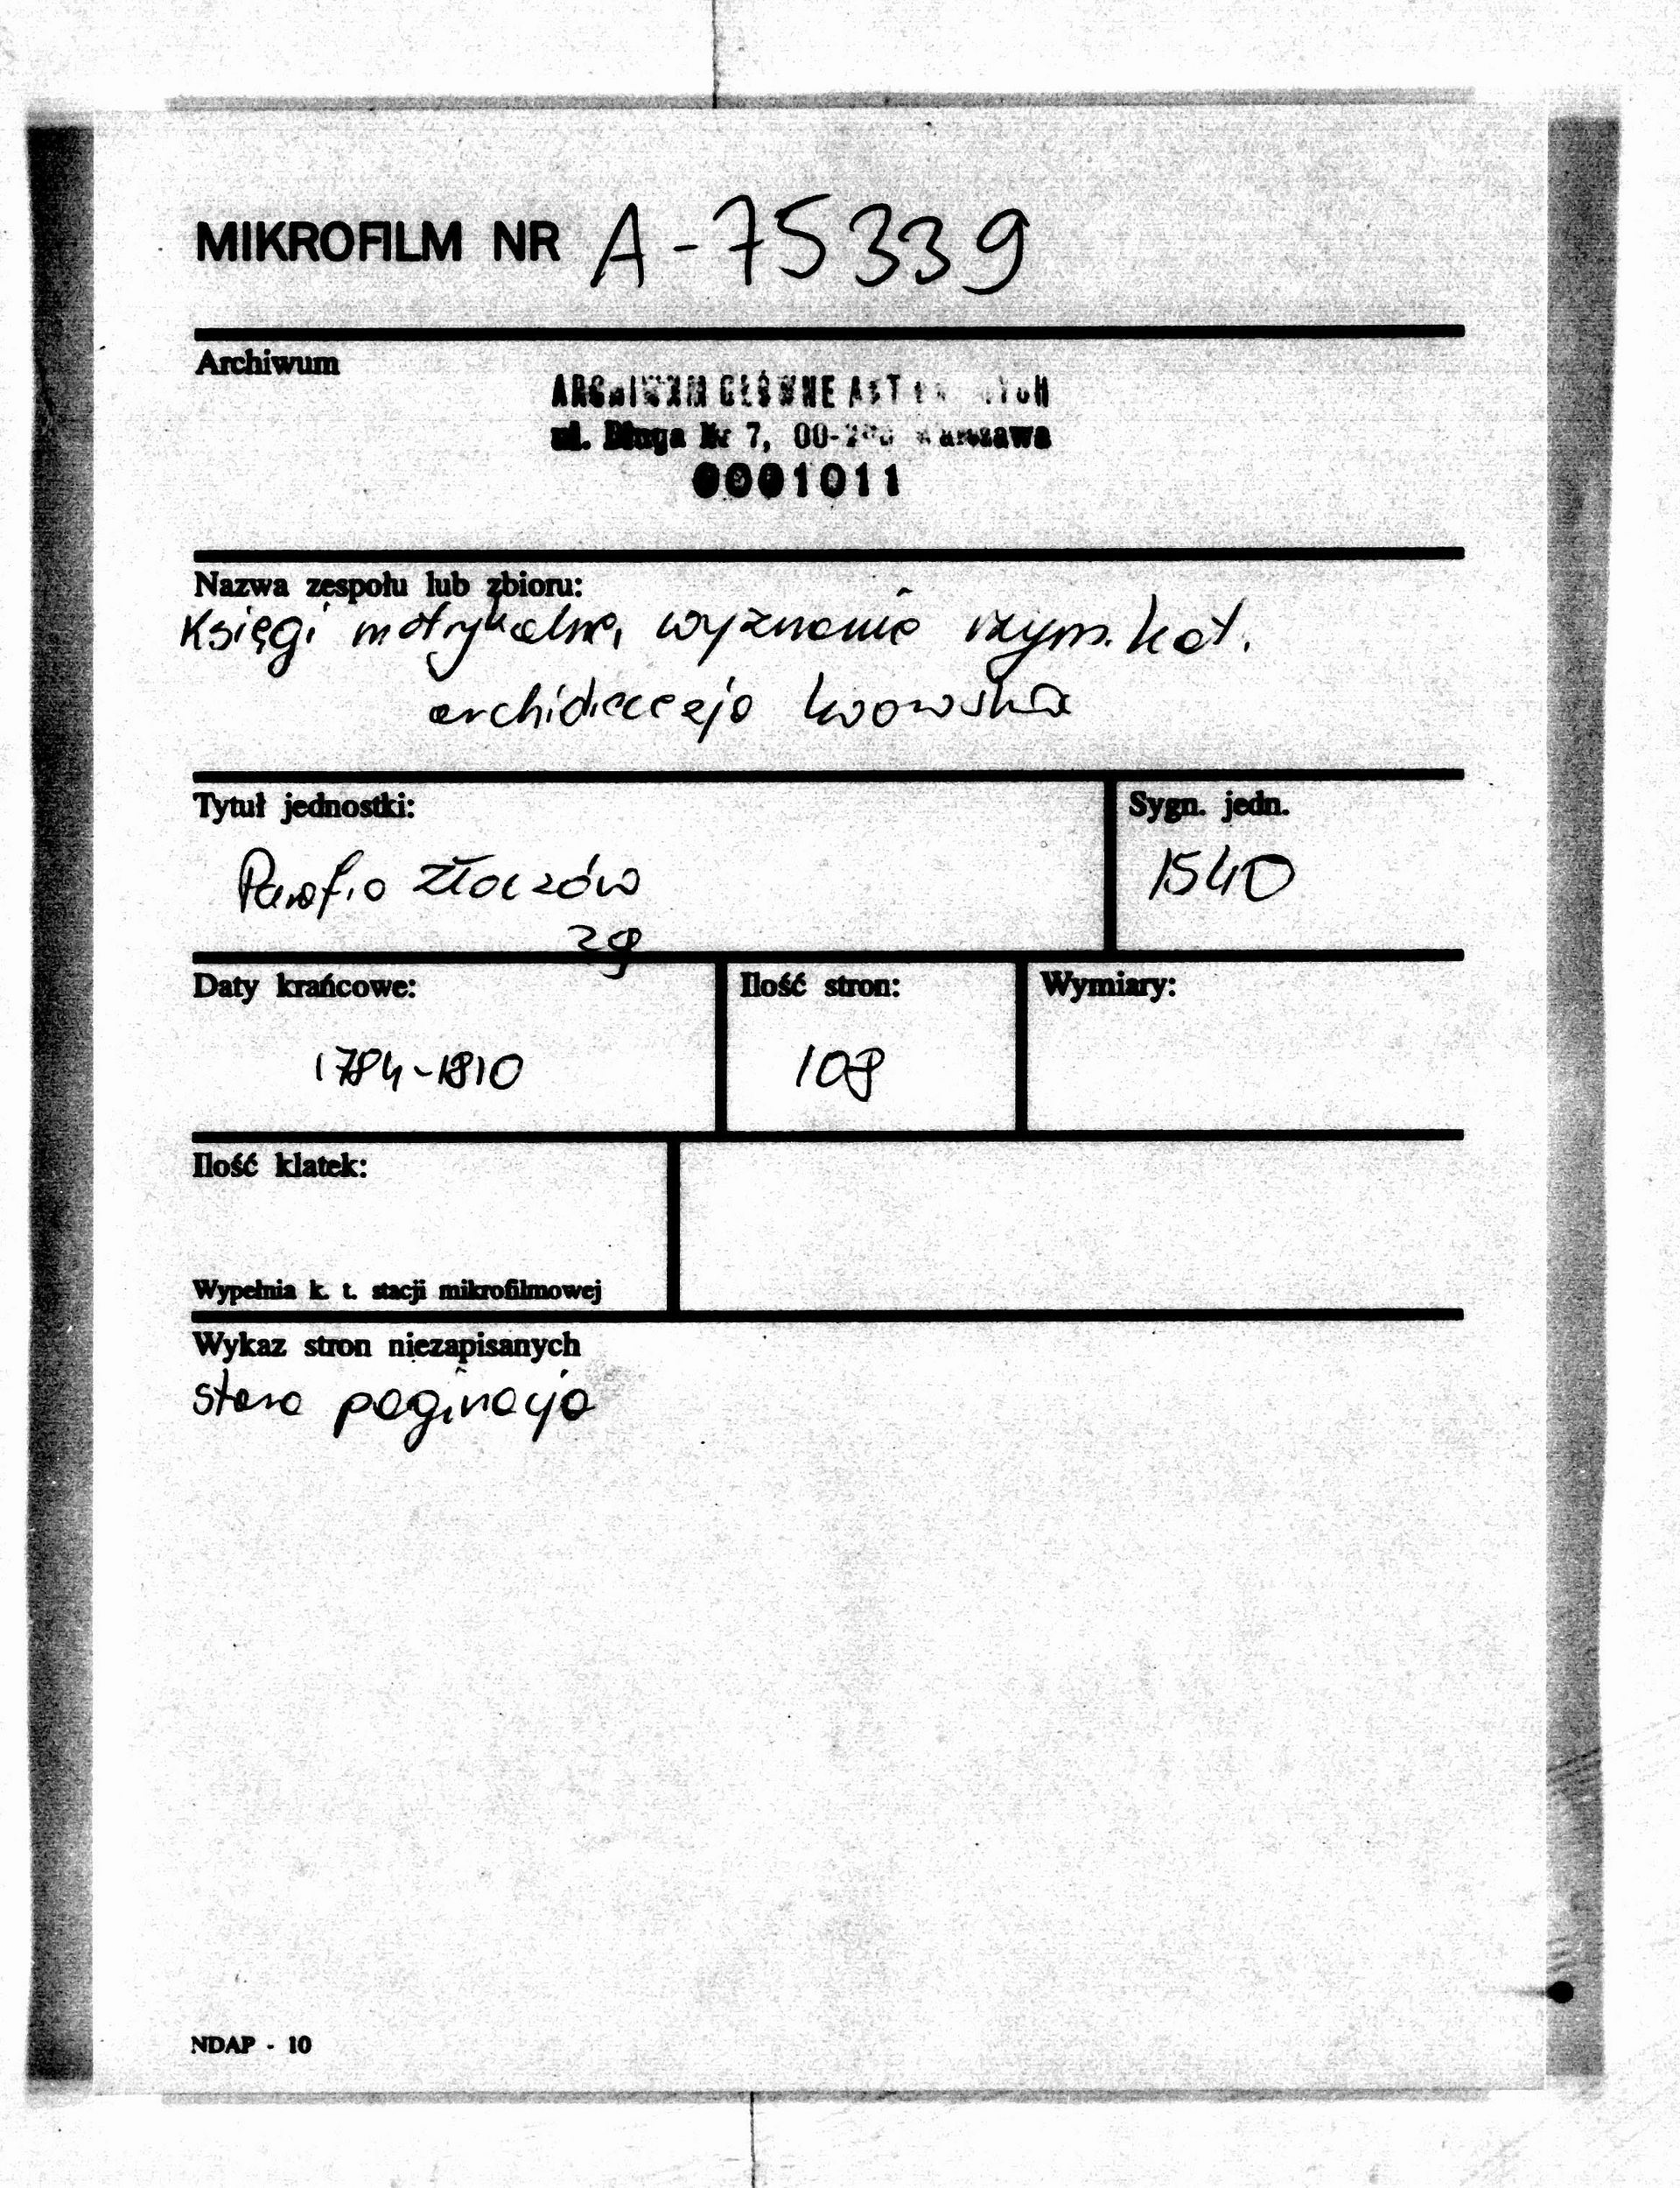 MIKROFILM NR A-75339
Archiwum
ARCHIWUM GŁÓWNE AKT
ul. Długa Nr 7, 00- Warszawa
0001011
Nazwa zespołu lub zbioru:
Księgi metrykalne, wyznanie rzym. kat.
archidiecezja lwowska
Tytuł jednostki:
Parafia Złoczów
zg
Sygn. jedn.
1540
Daty krańcowe:
1784-1810
Ilość stron:
108
Wymiary:
Ilość klatek:
Wypełnia k. t. stacji mikrofilmowej
Wykaz stron niezapisanych
stara paginacja
NDAP - 10